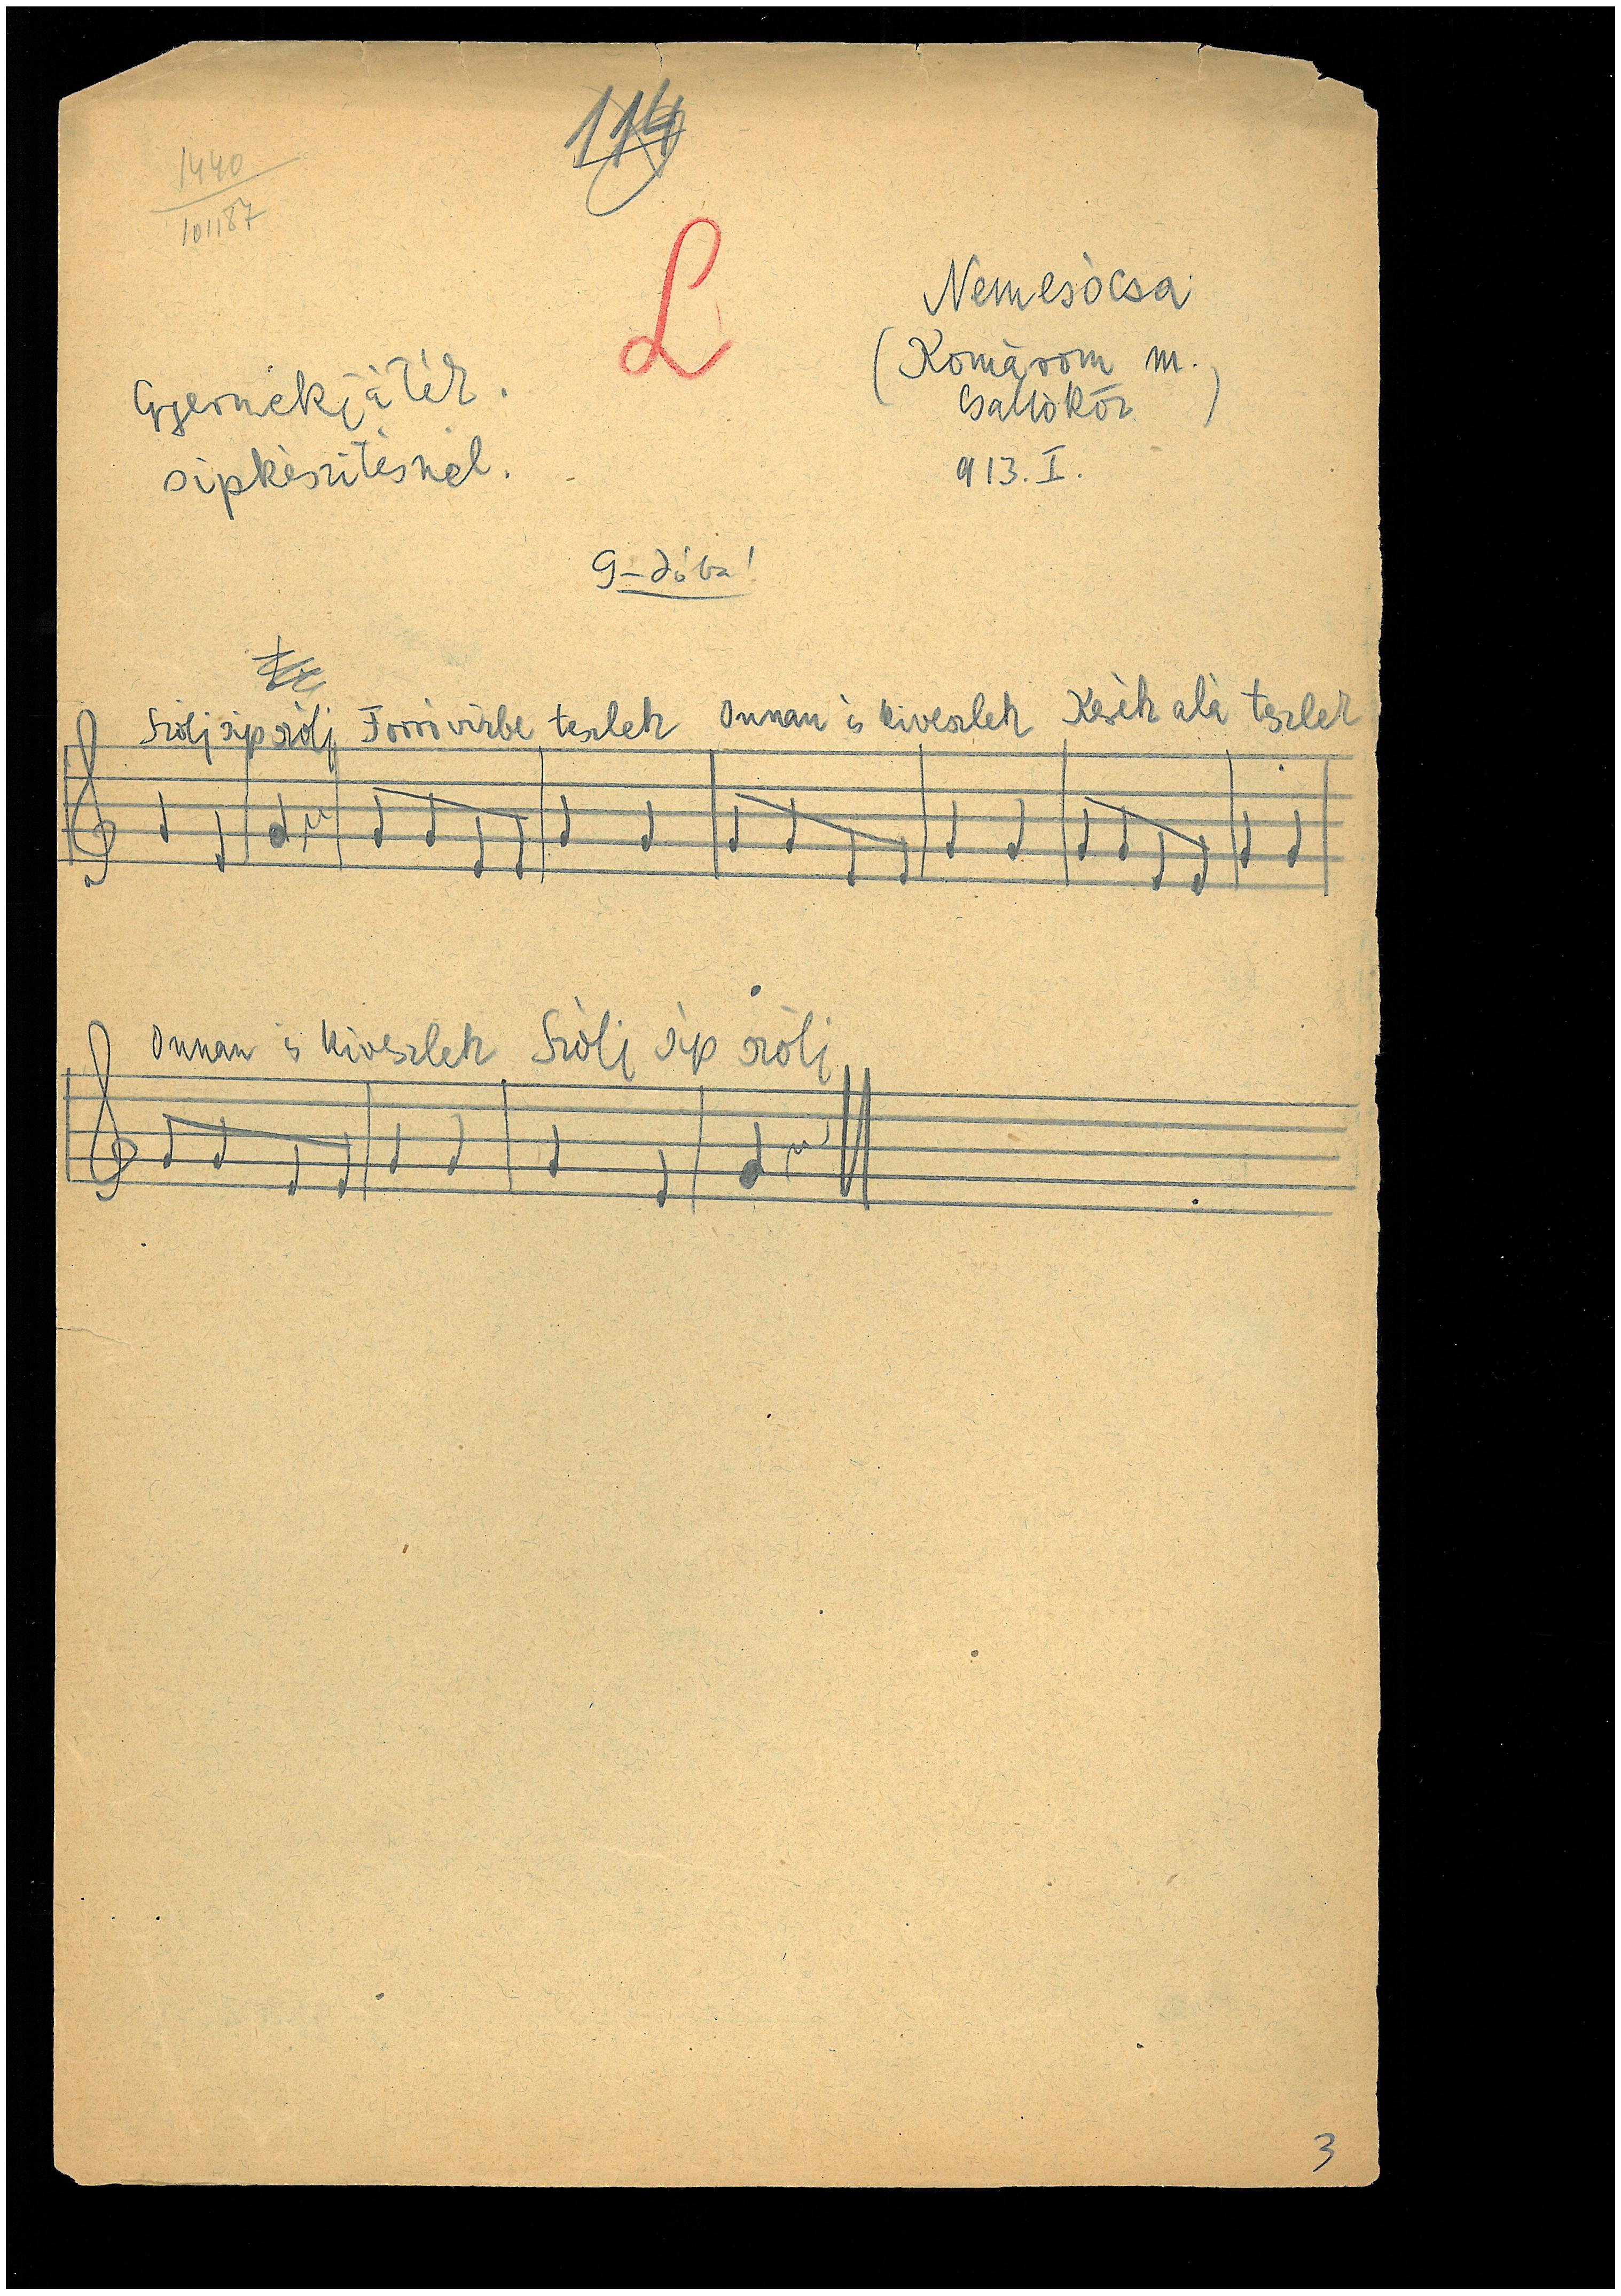 114
1440
101187
L
Nemesócsa
(Komárom m.
Csallóköz)
913. I.
Gyermekjáték.
sípkészítésnél.
G-dóba!
Szólj síp szólj Forró vízbe teszlek Onnan is kiveszlek Kerék alá teszlek
Onnan is kiveszlek Szólj síp szólj
3